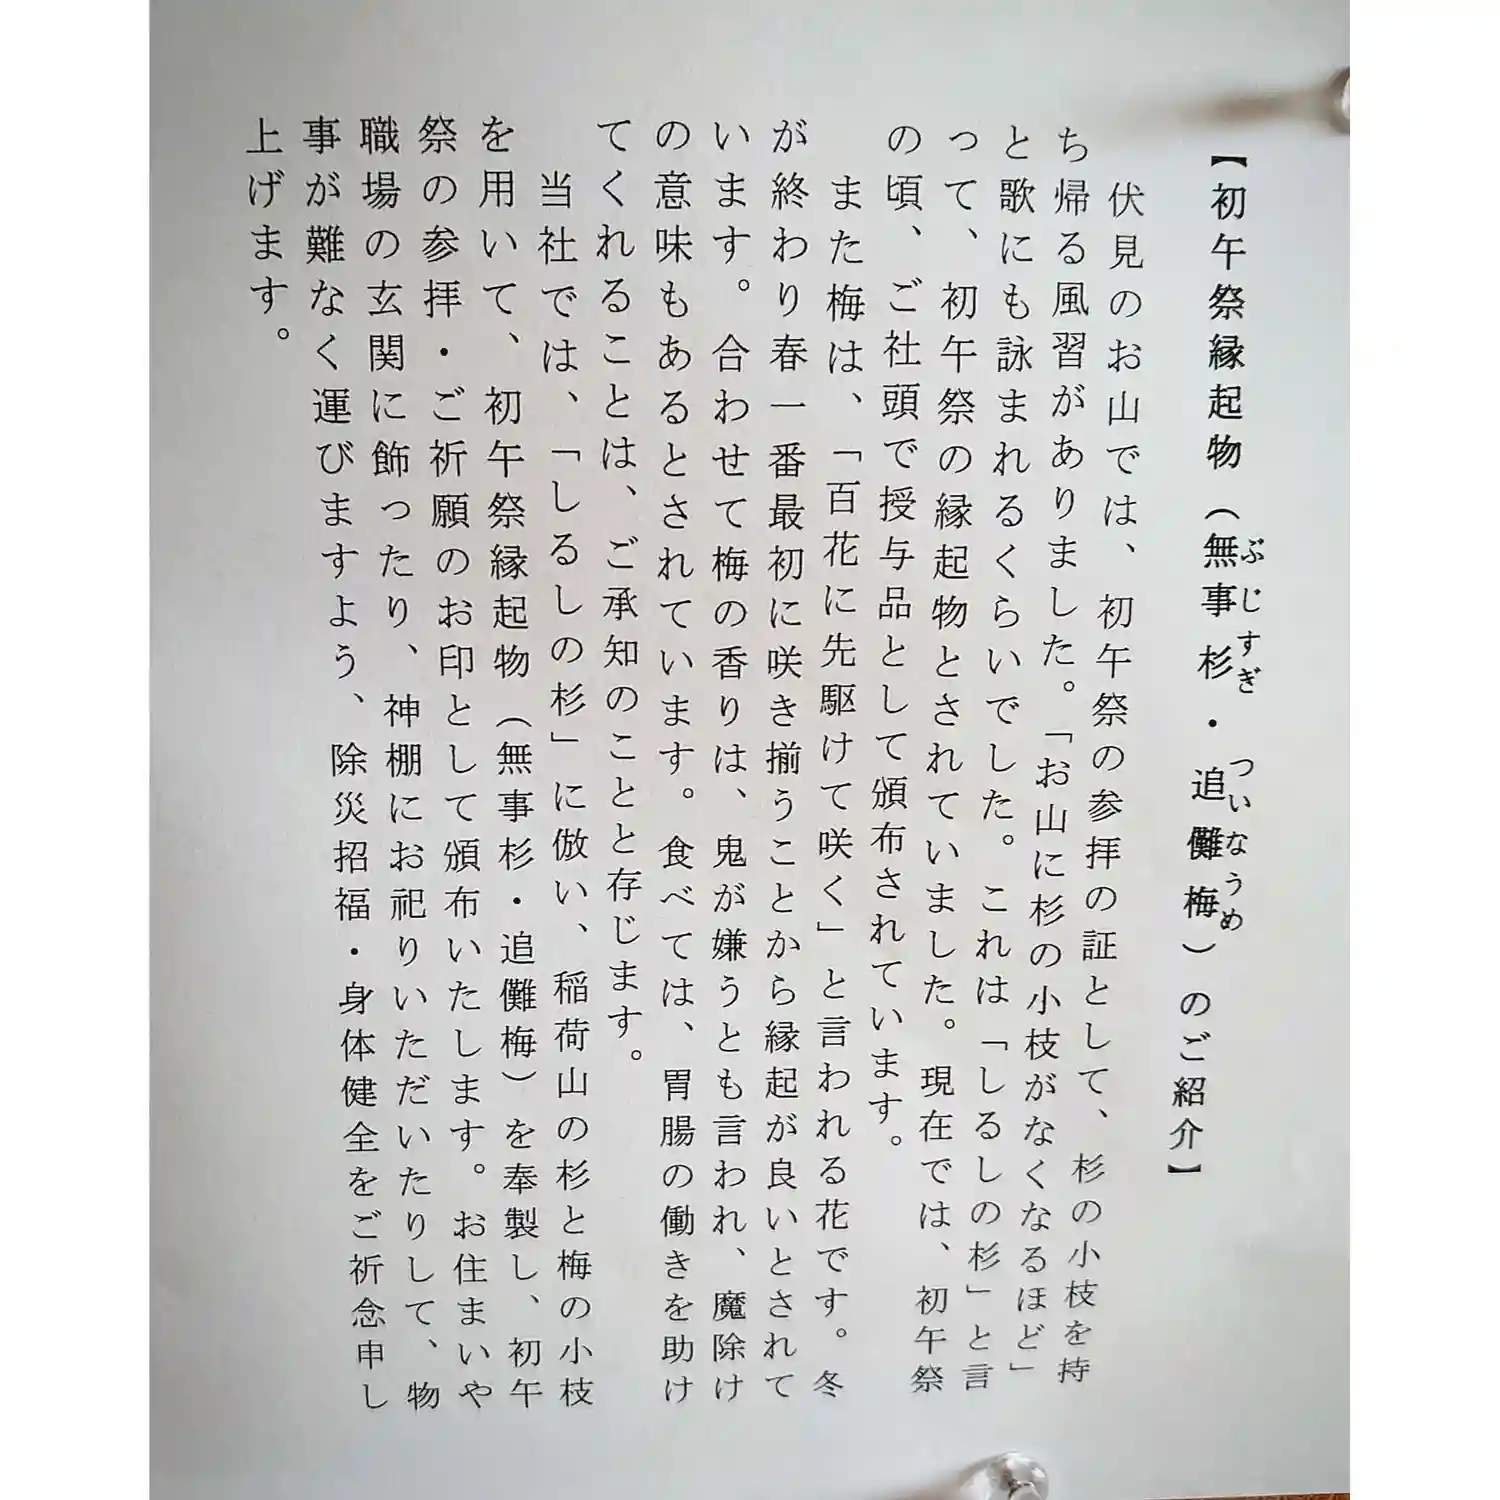 【初午祭縁起物（無事杉・追儺梅）のご紹介】
ぶじすぎ ついなうめ
伏見のお山では、初午祭の参拝の証として、杉の小枝を持
ち帰る風習がありました。「お山に杉の小枝がなくなるほど」
と歌にも詠まれるくらいでした。これは「しるしの杉」と言
って、初午祭の縁起物とされていました。現在では、初午祭
の頃、ご社頭で授与品として頒布されています。
また梅は、「百花に先駆けて咲く」と言われる花です。冬
が終わり春一番最初に咲き揃うことから縁起が良いとされて
います。合わせて梅の香りは、鬼が嫌うとも言われ、魔除け
の意味もあるとされています。食べては、胃腸の働きを助け
てくれることは、ご承知のことと存じます。
当社では、「しるしの杉」に倣い、稲荷山の杉と梅の小枝
を用いて、初午祭縁起物（無事杉・追儺梅）を奉製し、初午
祭の参拝・ご祈願のお印として頒布いたします。お住まいや
職場の玄関に飾ったり、神棚にお祀りいただいたりして、物
事が難なく運びますよう、除災招福・身体健全をご祈念申し
上げます。